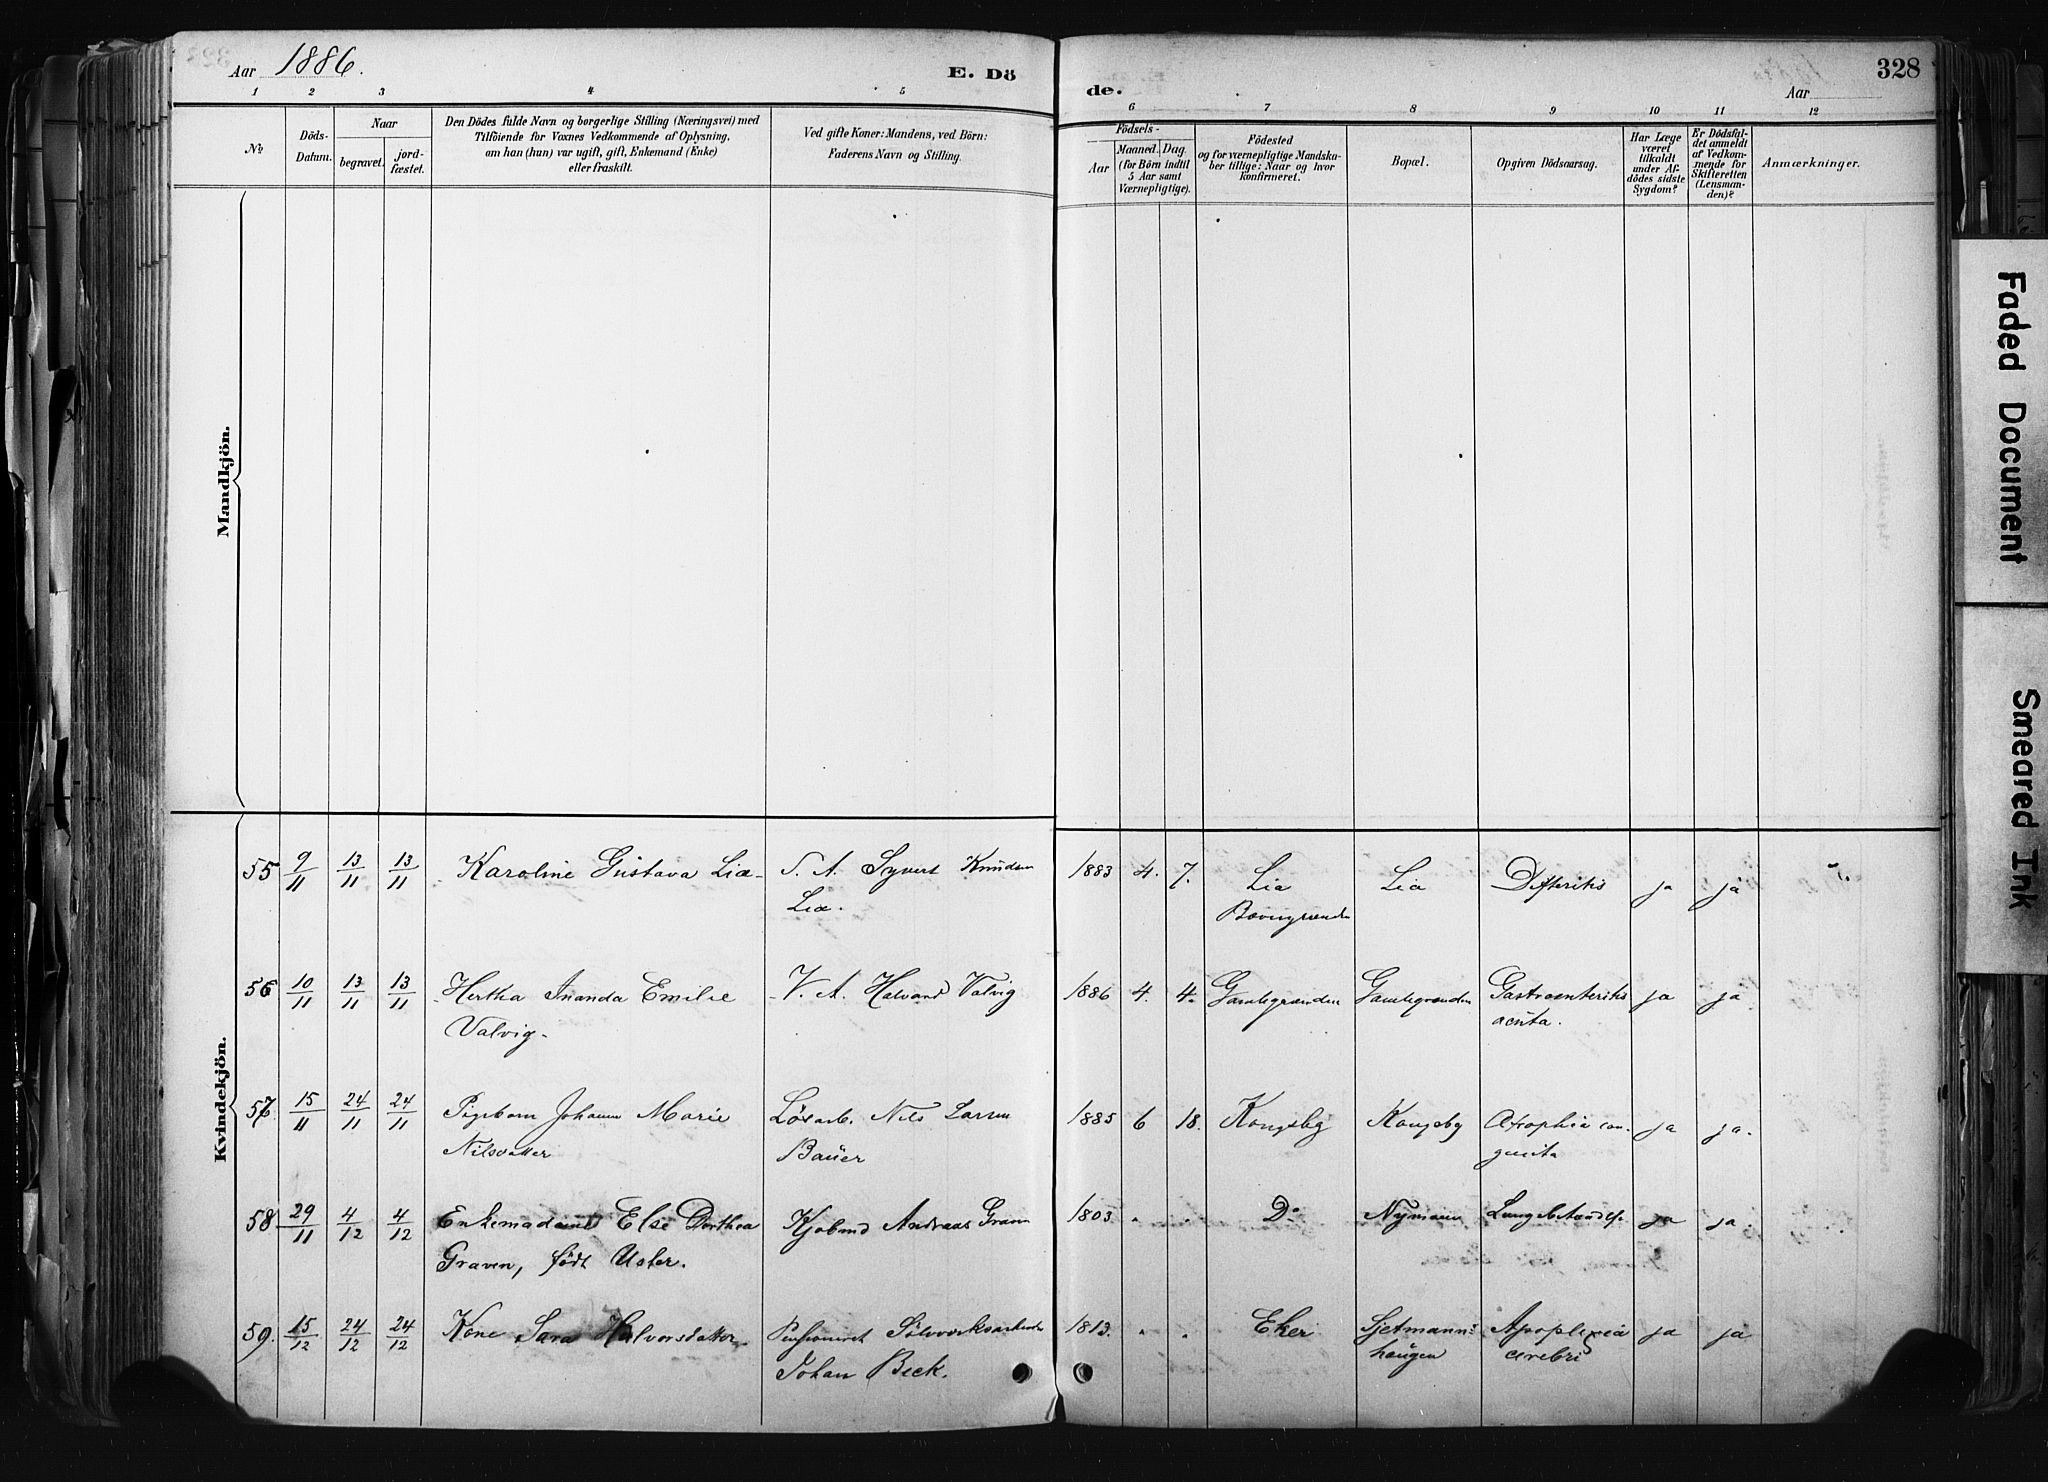 Aar 1886.
E. Dö
de.
Aar
328
1 2 3 4 5 6 7 8 9 10 11 12
No
Döds-Datum.
Naar
begravet.
jord-fæstet.
Den Dödes fulde Navn og borgerlige Stilling (Næringsvei) med
Tilföiende for Voxnes Vedkommende af Oplysning,
om han (hun) var ugift, gift, Enkemand (Enke)
eller fraskilt.
Ved gifte Koner: Mandens, ved Börn:
Faderens Navn og Stilling.
Födsels-
Aar
Maaned. Dag.
(for Börn indtil
5 Aar samt
Værnepligtige).
Födested
og for værnepligtige Mandska-
ber tillige: Naar og hvor
konfirmeret.
Bopæl.
Opgiven Dödsaarsag.
Har Læge
været
tilkaldt
under Af-
dödes sidste
Sygdom?
Er Dödsfal-
det anmeldt
af Vedkom-
mende for
Skifteretten
(Lensman-
den)?
Anmærkninger.
Mandkjön.
Kvindekjön.
55 9/11 13/11 13/11 Karoline Gustava Lia S. A. Syvert Knudsen 1883 4. 7. Lia Lia Difteritis ja ja
Lia.
56 10/11 13/11 13/11 Hertha Inanda Emilie V. A. Halvard Valvig 1886 4. 4. Gamlegrænden Gamlegrænden Gastroenteritis ja ja
Valvig acuta.
57. 15/11 24/11 24/11 Pigebarn Johanne Marie Lösarb. Nils Larsen 1885 6 18. Kongsbg Kongsbg Atrophia con- ja ja.
Nilsdatter Bauer genita
58 29/11 4/12 4/12 Enkemadame Else Dorthea Kjøbmd Andreas Graven 1803 " " Do Nymoen Lungebetændelse ja ja
Graven, født Uster.
59. 15/12 24/12 24/12 Kone Sara Halvorsdatter Pensioneret Sölvverksarbeider 1813. " " Eker Sjetmanns- Apoplexia ja ja
Johan Beck. haugen cerebri
Faded Document
Smeared Ink